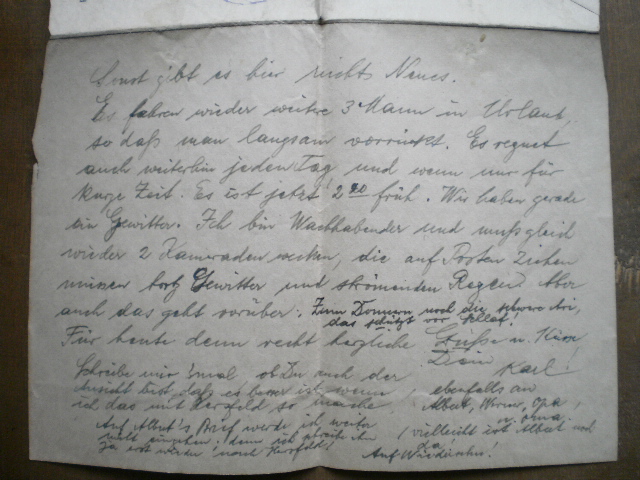 Sonst gibt es hier nichts Neues.
Es fahren wieder weitere 3 Mann in Urlaub,
so daß man langsam vorrückt. Es regnet
auch weiterhin jeden Tag und wenn nur für
kurze Zeit. Es ist jetzt 2 20 früh. Wir haben gerade
ein Gewitter. Ich bin Wachhabender und muß gleich
wieder 2 Kameraden wecken, die auf Posten ziehen
müssen trotz Gewitter und strömenden Regen. Aber
auch das geht vorüber. Zum Donnern noch die schwere Ari,
das
Für heute denn recht herzliche Grüße u. Kuss
Dein Karl!
Schreibe mir einmal ob Du auch der
Ansicht bist, daß es besser ist, wenn
ich das mit Hersfeld so mache
ebenfalls an
Albert, Werner, Opa
u. Oma.
Auf Albert's Brief werde ich weiter
nicht eingehen, denn ich schreibe ihm
ja erst wieder nach Hersfeld!
vielleicht ist Albert noch
da!
Auf Wiedersehn!